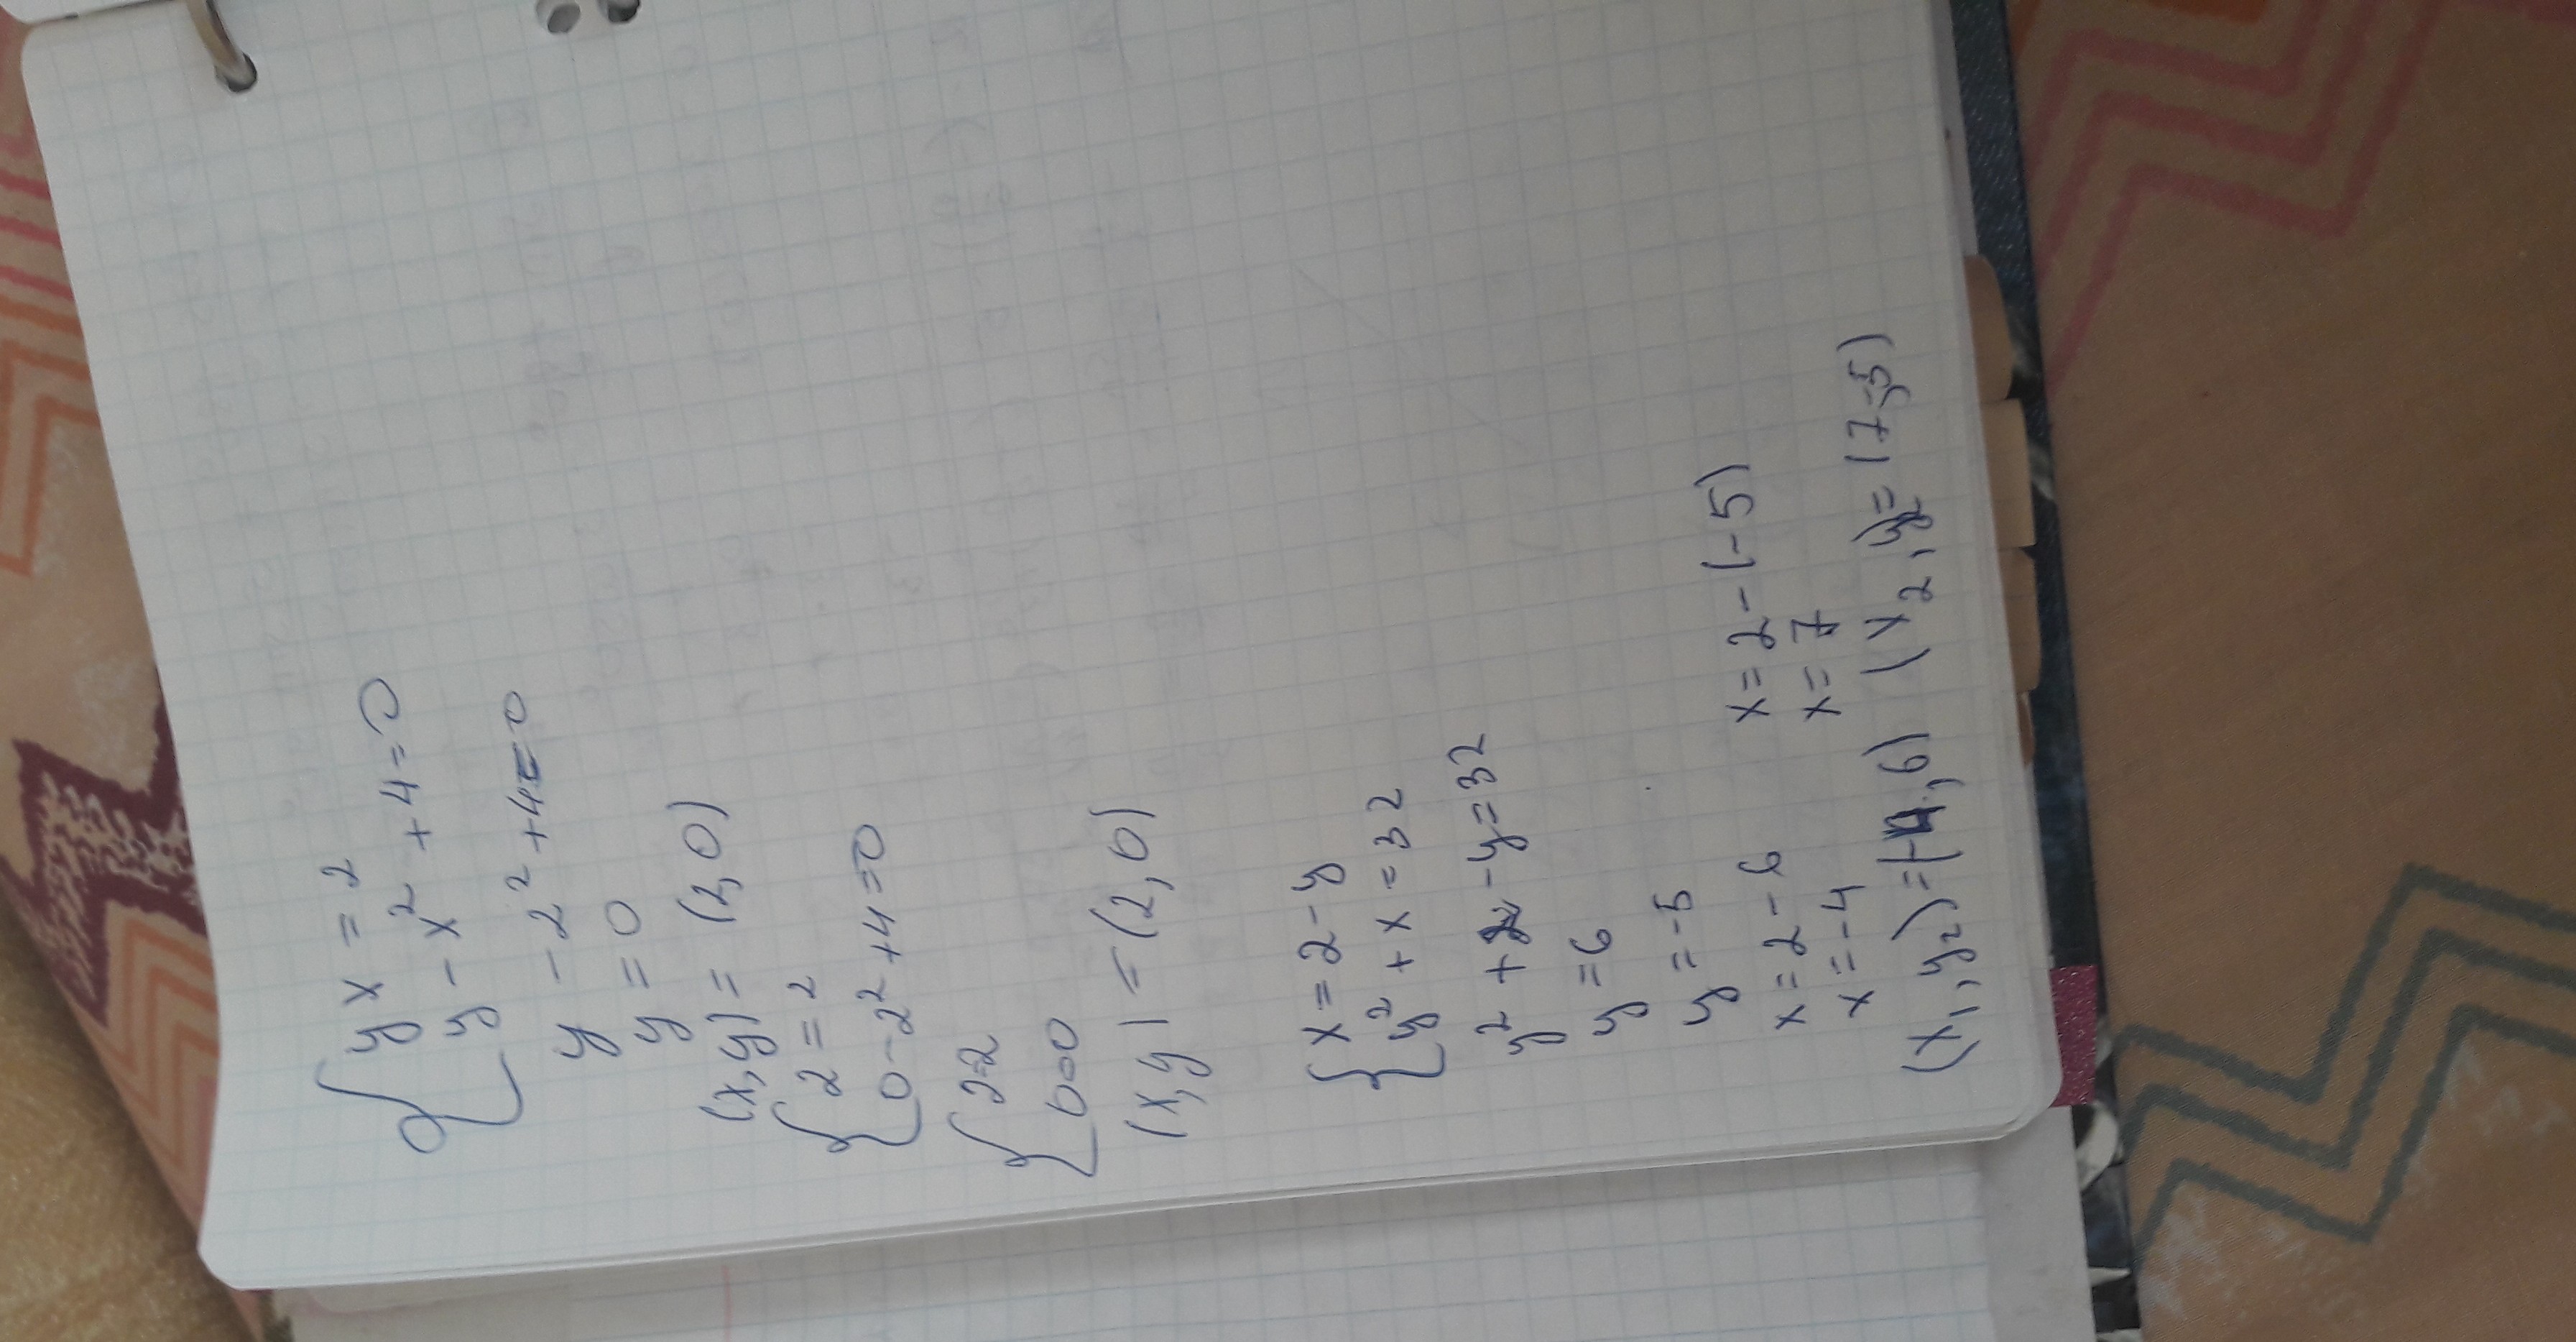 { y x = 2
y - x² + 4 = 0
y - 2² + 4 = 0
y = 0
(x, y) = (2, 0)
{ 2 = 2
0 - 2² + 4 = 0
{ 2=2
0=0
(x, y) = (2, 0)
{ x = 2 - y
y² + x = 32
y² + 2 - y = 32
y = 6
y = -5
x = 2 - 6 x = 2 - (-5)
x = -4 x = 7
(x₁, y₂) = (-4, 6) (x₂, y₂) = (7-5)